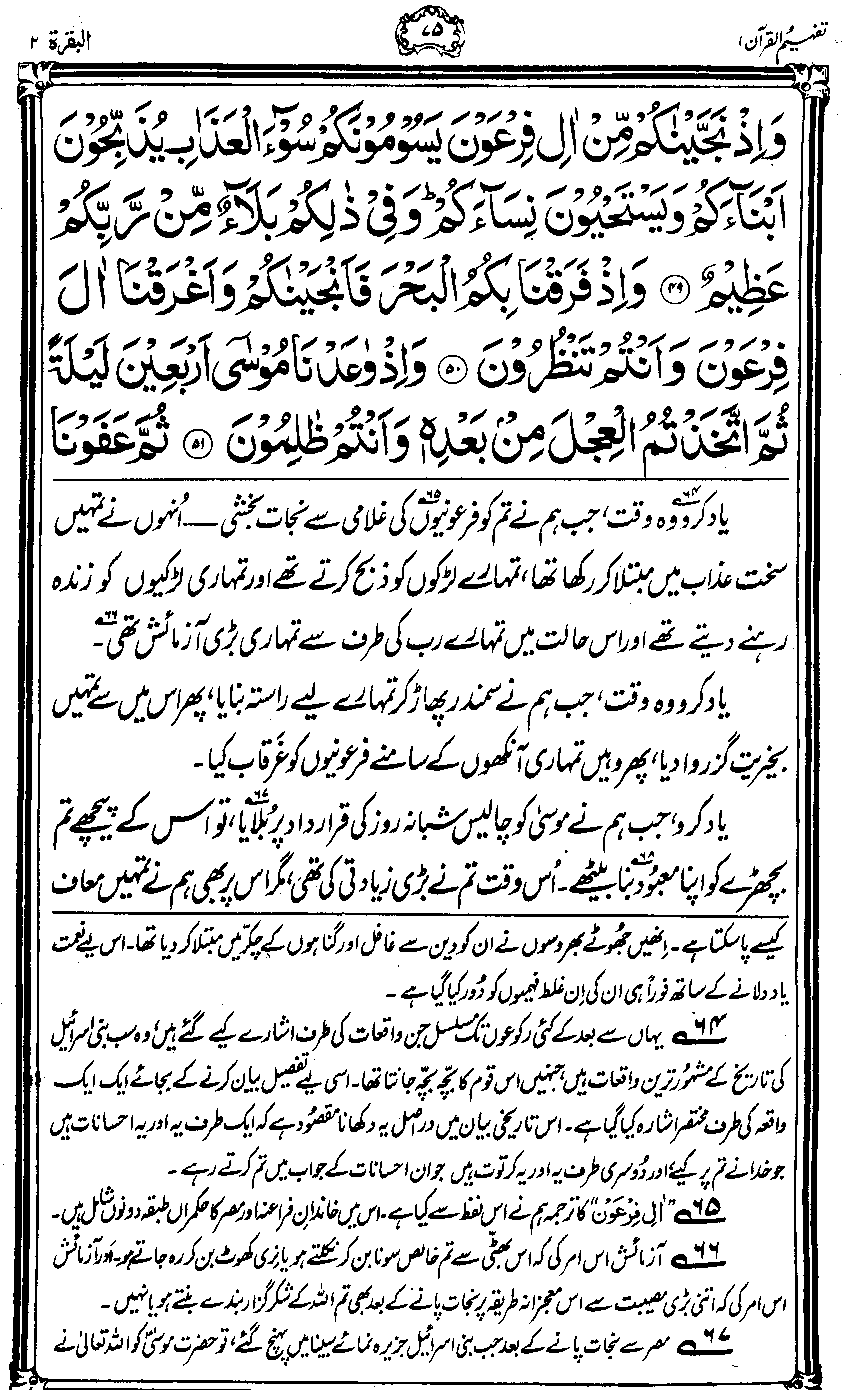 تفہیم القرآن ۱
۷۵
البقرة ۲
وَاِذْ نَجَّيْنٰكُمْ مِّنْ اٰلِ فِرْعَوْنَ يَسُوْمُوْنَكُمْ سُوْٓءَ الْعَذَابِ يُذَبِّحُوْنَ
اَبْنَآءَكُمْ وَيَسْتَحْيُوْنَ نِسَآءَكُمْ ؕ وَفِيْ ذٰلِكُمْ بَلَآءٌ مِّنْ رَّبِّكُمْ
عَظِيْمٌ ﴿۴۹﴾ وَاِذْ فَرَقْنَا بِكُمُ الْبَحْرَ فَاَنْجَيْنٰكُمْ وَاَغْرَقْنَآ اٰلَ
فِرْعَوْنَ وَاَنْتُمْ تَنْظُرُوْنَ ﴿۵۰﴾ وَاِذْ وٰعَدْنَا مُوْسٰٓى اَرْبَعِيْنَ لَيْلَةً
ثُمَّ اتَّخَذْتُمُ الْعِجْلَ مِنْۢ بَعْدِهٖ وَاَنْتُمْ ظٰلِمُوْنَ ﴿۵۱﴾ ثُمَّ عَفَوْنَا
یاد کرو۶۴ وہ وقت، جب ہم نے تم کو فرعونیوں۶۵ کی غلامی سے نجات بخشی — اُنہوں نے تمہیں
سخت عذاب میں مبتلا کر رکھا تھا، تمہارے لڑکوں کو ذبح کرتے تھے اور تمہاری لڑکیوں کو زندہ
رہنے دیتے تھے اور اس حالت میں تمہارے رب کی طرف سے تمہاری بڑی آزمائش تھی۶۶۔
یاد کرو وہ وقت، جب ہم نے سمندر پھاڑ کر تمہارے لیے راستہ بنایا، پھر اس میں سے تمہیں
بخیریت گزروا دیا، پھر وہیں تمہاری آنکھوں کے سامنے فرعونیوں کو غرقاب کیا۔
یاد کرو، جب ہم نے موسیٰ کو چالیس شبانہ روز کی قرارداد پر بُلایا۶۷، تو اس کے پیچھے تم
بچھڑے کو اپنا معبُود۶۸ بنا بیٹھے۔ اُس وقت تم نے بڑی زیادتی کی تھی، مگر اس پر بھی ہم نے تمہیں معاف
کیسے پا سکتا ہے۔ اِنھیں جھُوٹے بھروسوں نے ان کو دین سے غافل اور گناہوں کے چکر میں مبتلا کر دیا تھا۔ اس لیے نعمت
یاد دلانے کے ساتھ فوراً ہی ان کی اِن غلط فہمیوں کو دُور کیا گیا ہے۔
۶۴ یہاں سے بعد کے کئی رکوعوں تک مسلسل جن واقعات کی طرف اشارے کیے گئے ہیں، وہ سب بنی اسرائیل
کی تاریخ کے مشہور ترین واقعات ہیں، جنہیں اس قوم کا بچّہ بچّہ جانتا تھا۔ اسی لیے تفصیل بیان کرنے کے بجائے ایک ایک
واقعہ کی طرف مختصر اشارہ کیا گیا ہے۔ اس تاریخی بیان میں دراصل یہ دکھانا مقصُود ہے کہ ایک طرف یہ اور یہ احسانات ہیں
جو خدا نے تم پر کیے، اور دُوسری طرف یہ اور یہ کرتوت ہیں جو ان احسانات کے جواب میں تم کرتے رہے۔
۶۵ ”اٰلِ فِرْعَوْنَ“ کا ترجمہ ہم نے اس لفظ سے کیا ہے۔ اس میں خاندانِ فراعنہ اور مصر کا حکمراں طبقہ دونوں شامل ہیں۔
۶۶ آزمائش اس امر کی کہ اس بھٹّی سے تم خالص سونا بن کر نکلتے ہو یا نِری کھوٹ بن کر رہ جاتے ہو۔ اور آزمائش
اس امر کی کہ اتنی بڑی مصیبت سے اس معجزانہ طریقہ پر نجات پانے کے بعد بھی تم اللہ کے شکر گزار بندے بنتے ہو یا نہیں۔
۶۷ مصر سے نجات پانے کے بعد جب بنی اسرائیل جزیرہ نمائے سینا میں پہنچ گئے، تو حضرت موسیٰؑ کو اللہ تعالیٰ نے